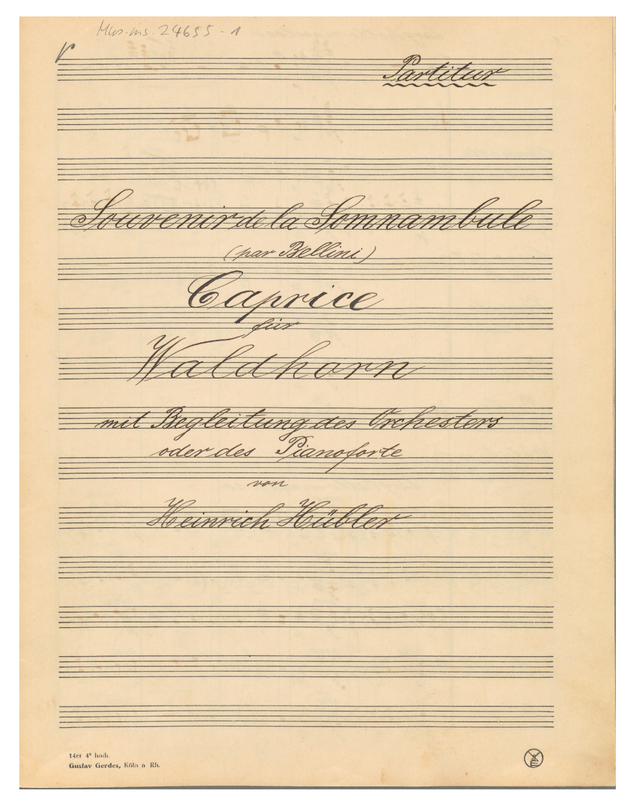 Mus.ms. 24655-1
Partitur
Souvenir de la Somnambule
(par Bellini)
Caprice
für
Waldhorn
mit Begleitung des Orchesters
oder des Pianoforte
von
Heinrich Hübler
14er 4º hoch.
Gustav Gerdes, Köln a Rh.